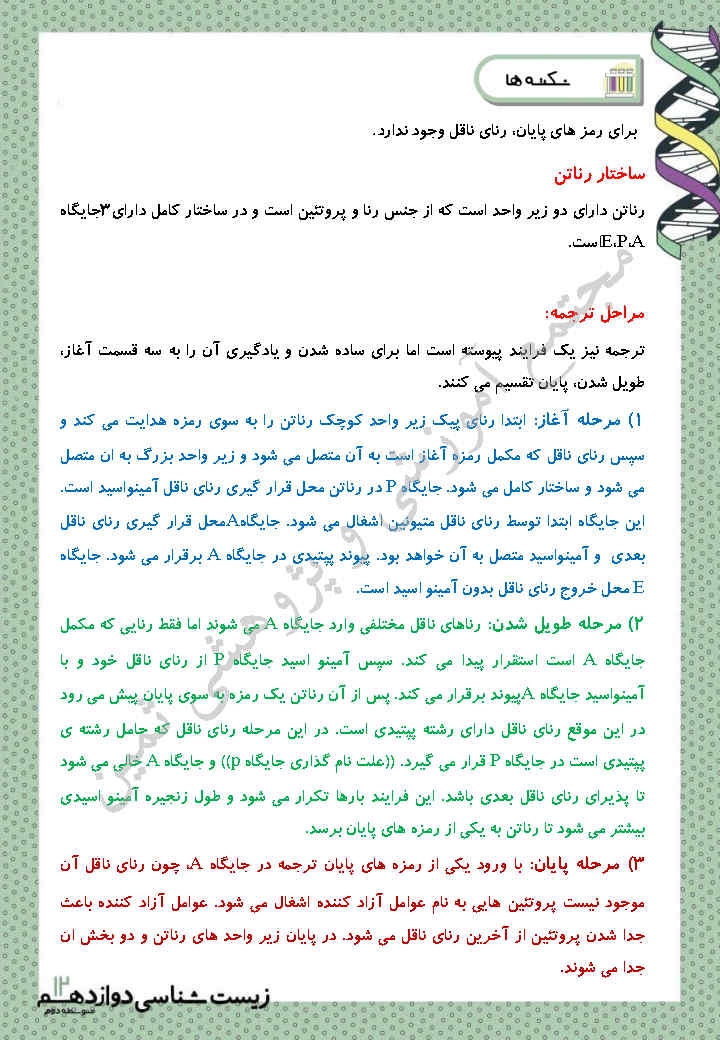 نکته ها
برای رمز های پایان، رنای ناقل وجود ندارد.
ساختار رناتن
رناتن دارای دو زیر واحد است که از جنس رنا و پروتئین است و در ساختار کامل دارای۳جایگاه
E،P،Aاست.
مراحل ترجمه:
ترجمه نیز یک فرایند پیوسته است اما برای ساده شدن و یادگیری آن را به سه قسمت آغاز،
طویل شدن، پایان تقسیم می کنند.
۱) مرحله آغاز: ابتدا رنای پیک زیر واحد کوچک رناتن را به سوی رمزه هدایت می کند و
سپس رنای ناقل که مکمل رمزه آغاز است به آن متصل می شود و زیر واحد بزرگ به ان متصل
می شود و ساختار کامل می شود. جایگاه P در رناتن محل قرار گیری رنای ناقل آمینواسید است.
این جایگاه ابتدا توسط رنای ناقل متیونین اشغال می شود. جایگاهAمحل قرار گیری رنای ناقل
بعدی و آمینواسید متصل به آن خواهد بود. پیوند پپتیدی در جایگاه A برقرار می شود. جایگاه
E محل خروج رنای ناقل بدون آمینو اسید است.
۲) مرحله طویل شدن: رناهای ناقل مختلفی وارد جایگاه A می شوند اما فقط رنایی که مکمل
جایگاه A است استقرار پیدا می کند. سپس آمینو اسید جایگاه P از رنای ناقل خود و با
آمینواسید جایگاه Aپیوند برقرار می کند. پس از آن رناتن یک رمزه به سوی پایان پیش می رود
در این موقع رنای ناقل دارای رشته پپتیدی است. در این مرحله رنای ناقل که حامل رشته ی
پپتیدی است در جایگاه P قرار می گیرد. ((علت نام گذاری جایگاه p)) و جایگاه A خالی می شود
تا پذیرای رنای ناقل بعدی باشد. این فرایند بارها تکرار می شود و طول زنجیره آمینو اسیدی
بیشتر می شود تا رناتن به یکی از رمزه های پایان برسد.
۳) مرحله پایان: با ورود یکی از رمزه های پایان ترجمه در جایگاه A، چون رنای ناقل آن
موجود نیست پروتئین هایی به نام عوامل آزاد کننده اشغال می شود. عوامل آزاد کننده باعث
جدا شدن پروتئین از آخرین رنای ناقل می شود. در پایان زیر واحد های رناتن و دو بخش ان
جدا می شوند.
مجتمع آموزشی و پژوهشی ثمین
زیست شناسی دوازدهم ۱۲
متوسطه دوم